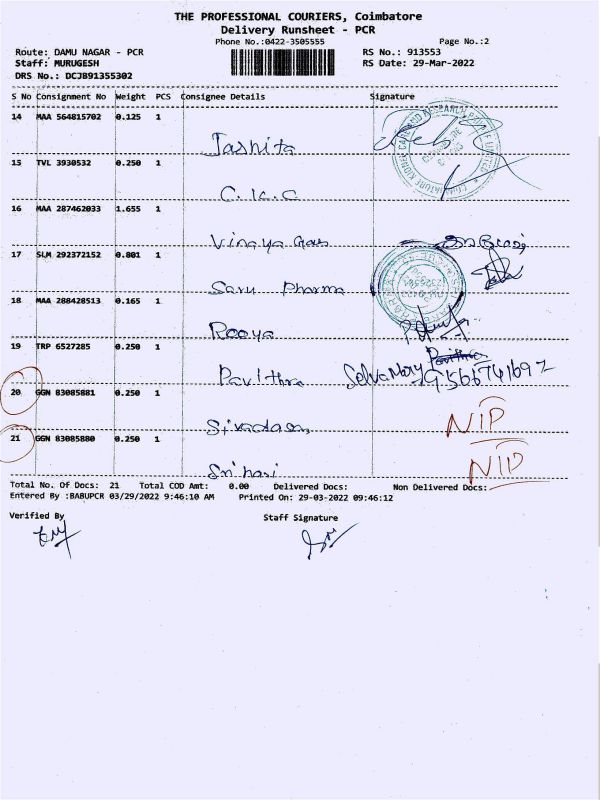 THE PROFESSIONAL COURIERS, Coimbatore
Delivery Runsheet - PCR
Phone No.:0422-3505555 Page No.:2
Route: DAMU NAGAR - PCR RS No.: 913553
Staff: MURUGESH RS Date: 29-Mar-2022
DRS No.: DCJB91355302
S No Consignment No Weight PCS Consignee Details Signature
14 MAA 564815702 0.125 1
Jashita
15 TVL 3930532 0.250 1
C.K.C
16 MAA 287462033 1.655 1
Vinaya
17 SLM 292372152 0.801 1
Saru Pharma
18 MAA 288428513 0.165 1
Rooya
19 TRP 6527285 0.250 1
Pavithra SelvaMary 9566741692
20 GGN 83085881 0.250 1
Sivadasan NIP
21 GGN 83085880 0.250 1
Srihari NIP
Total No. Of Docs: 21 Total COD Amt: 0.00 Delivered Docs: Non Delivered Docs:
Entered By :BABUPCR 03/29/2022 9:46:10 AM Printed On: 29-03-2022 09:46:12
Verified By Staff Signature